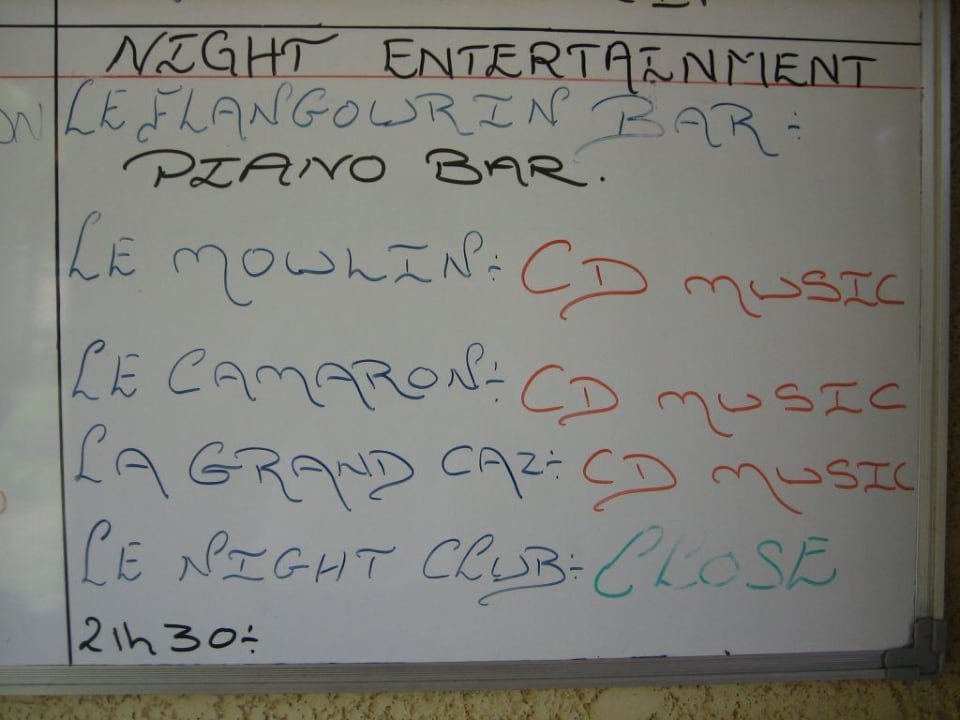 NIGHT ENTERTAINMENT
LE FLANGOURIN BAR:
PIANO BAR.
LE MOULIN: CD MUSIC
LE CAMARON: CD MUSIC
LA GRAND CAZ: CD MUSIC
LE NIGHT CLUB: CLOSE
21h30: